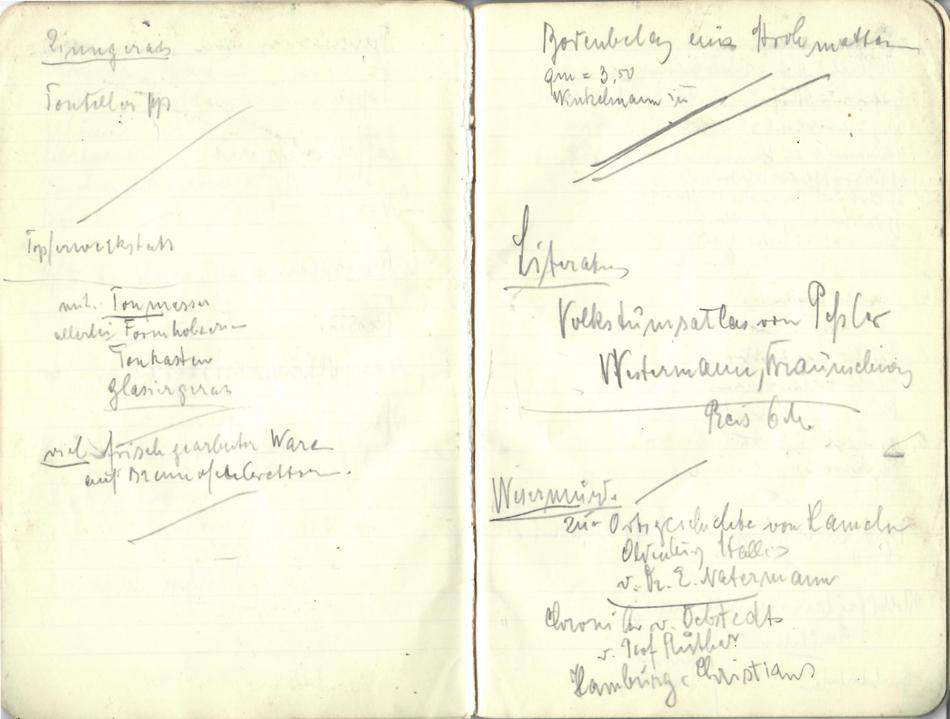 Zinngerät
Tonteller pp
Töpferwerkstatt
mit. Tonmesser
allerlei Formhobeln
Tonkasten
Glasiergerät
viel frisch gearbeiteter Ware
auf Brennofenbrettern.
Bodenbelag aus Strohmatten
qm = 3,50
Winkelmann
Literatur
Volkstumsatlas von Peßler
Westermann, Braunschweig
Preis 6 M
Wesermünde
Zur Ortsgeschichte von Hameln
v. Dr. E. Natermann
Chronik v. Debstedt
v. Prof Rüther
Hamburg, Christians